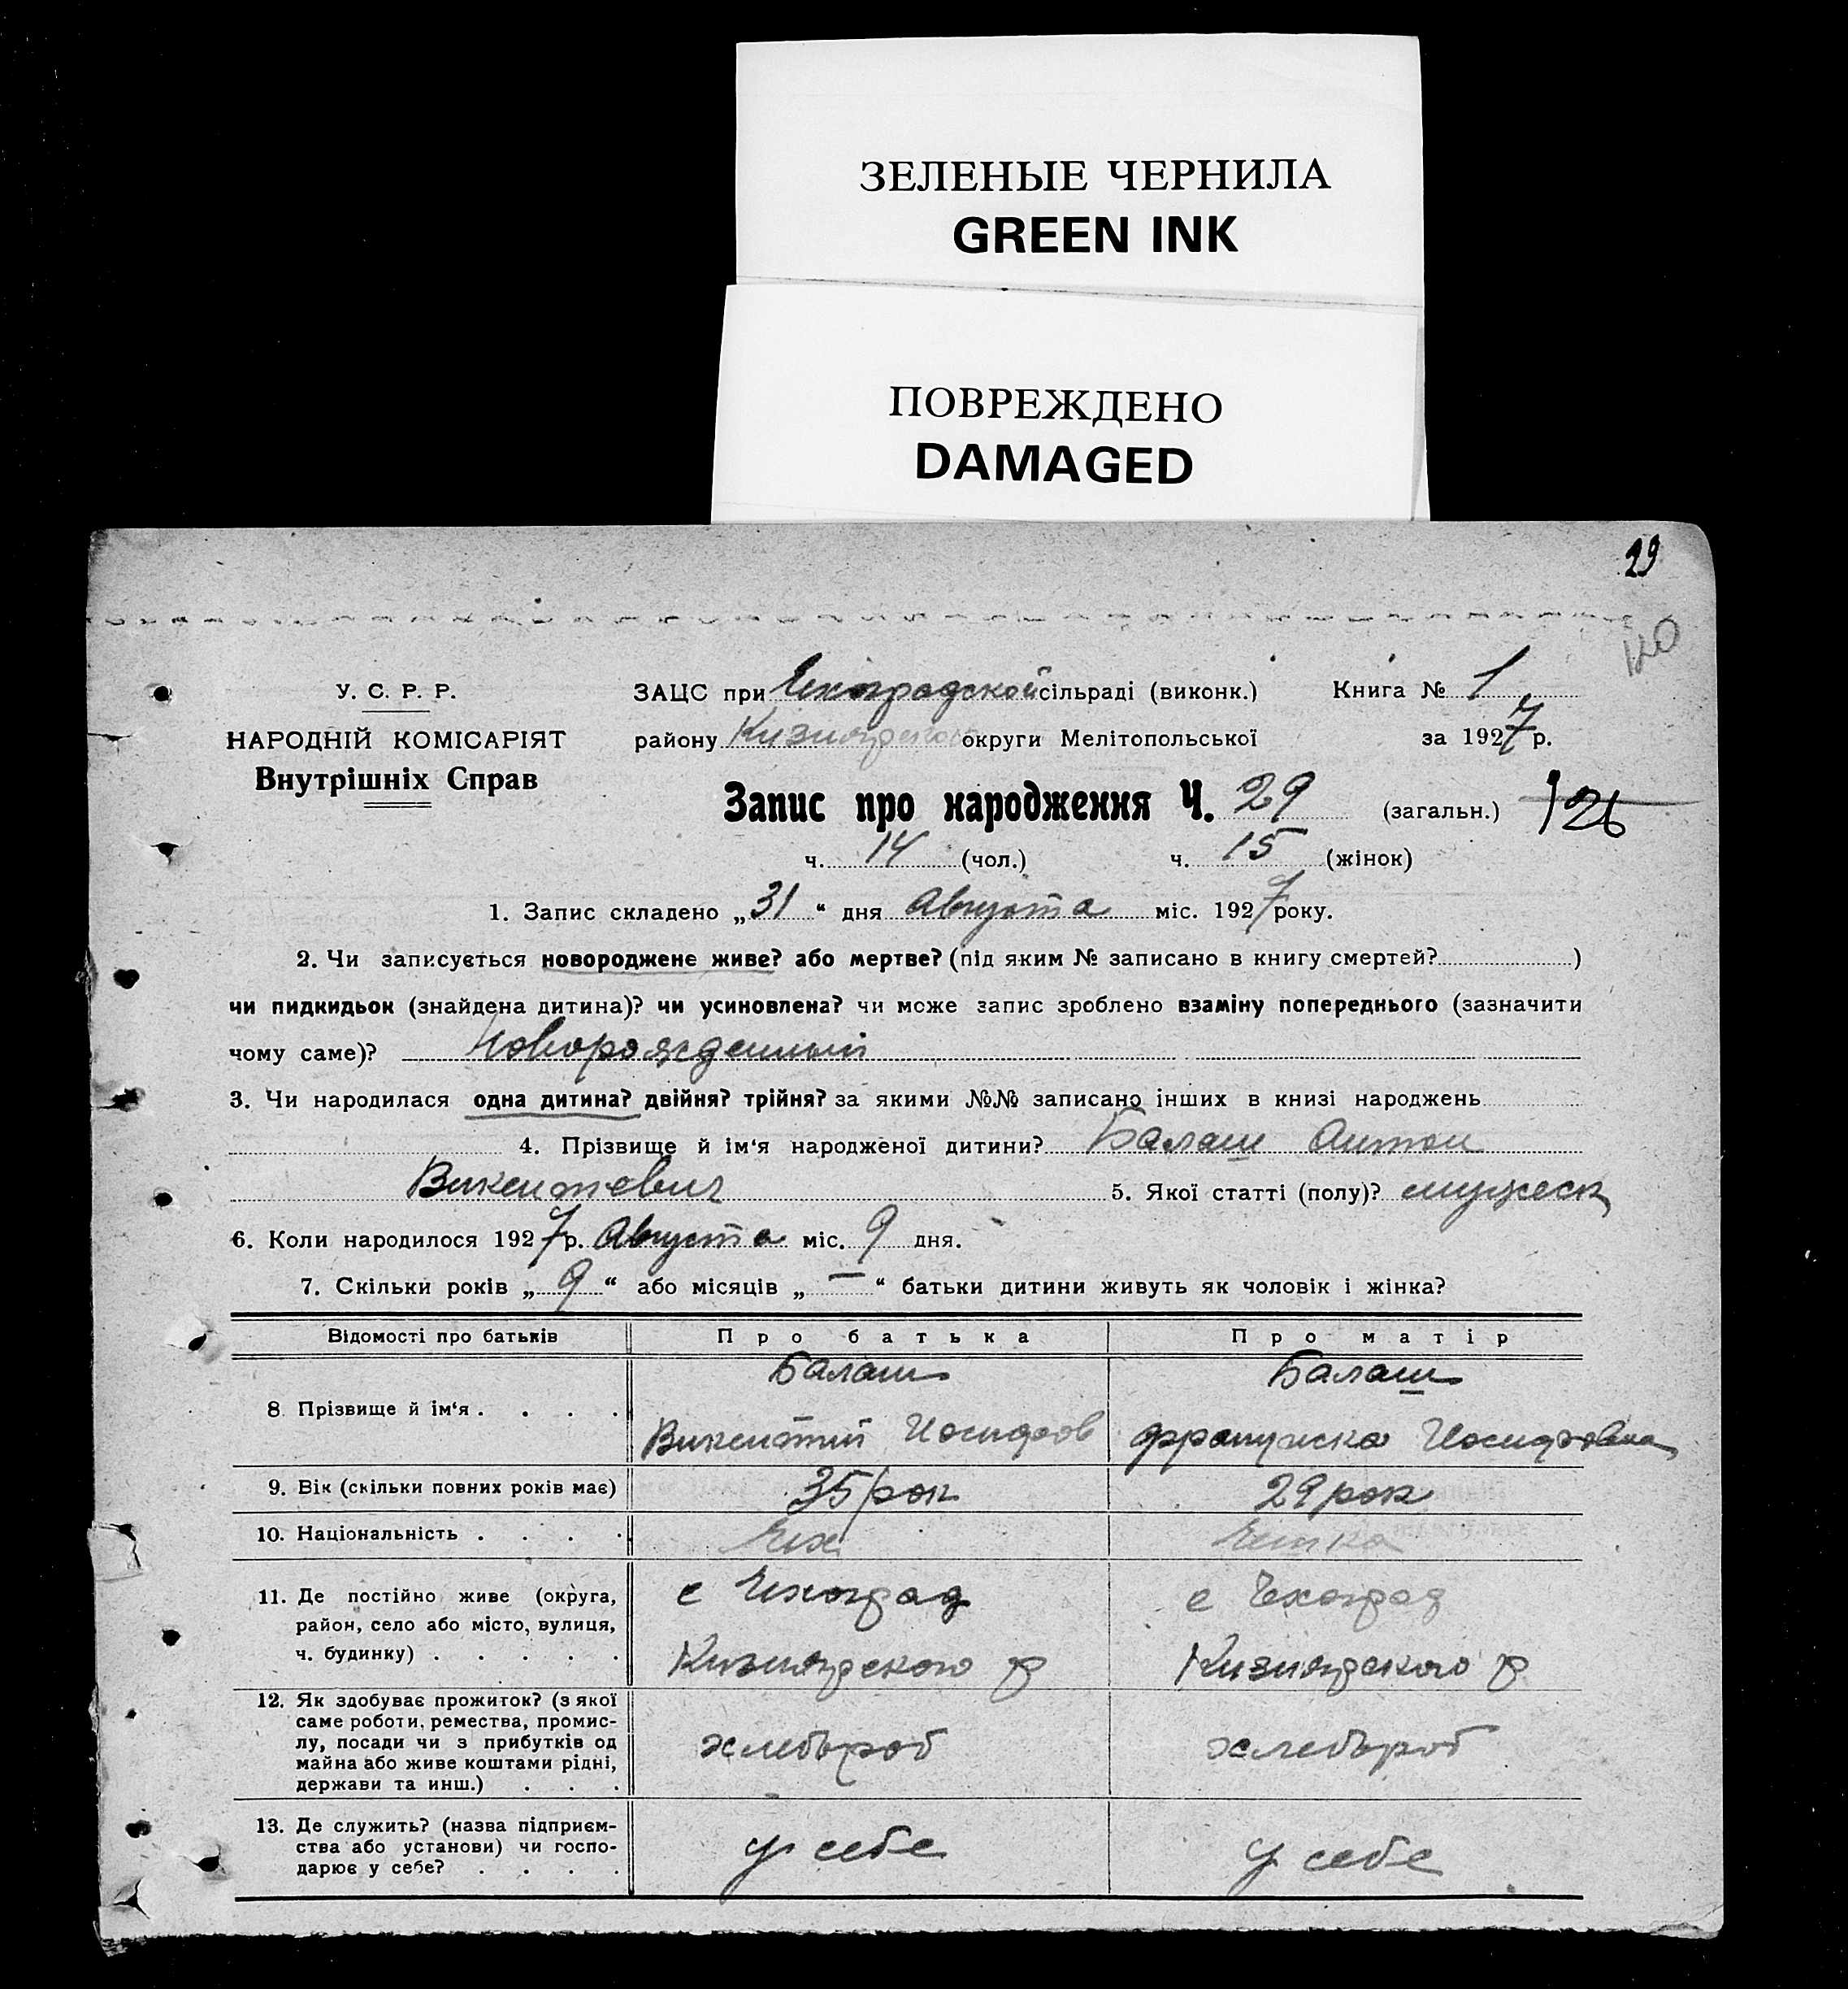 ЗЕЛЕНЫЕ ЧЕРНИЛА
GREEN INK
ПОВРЕЖДЕНО
DAMAGED
29
120
У. С. Р. Р.
НАРОДНІЙ КОМІСАРІЯТ
Внутрішніх Справ
ЗАЦС при Чехоградской сільраді (виконк.) Книга № 1
району Кизиярского округи Мелітопольської за 1927 р.
Запис про народження Ч. 29 (загальн.) 126
ч. 14 (чол.) ч. 15 (жінок)
1. Запис складено „31“ дня Августа міс. 1927 року.
2. Чи записується новороджене живе? або мертве? (під яким № записано в книгу смертей? )
чи пидкидьок (знайдена дитина)? чи усиновлена? чи може запис зроблено взаміну попереднього (зазначити
чому саме)? Новорожденный
3. Чи народилася одна дитина? двійня? трійня? за якими №№ записано інших в книзі народжень
4. Прізвище й ім‘я народженої дитини? Балаш Антон
Викентиевич 5. Якої статті (полу)? мужеск
6. Коли народилося 1927 р. Августа міс. 9 дня.
7. Скільки років „9“ або місяців „—“ батьки дитини живуть як чоловік і жінка?
Відомості про батьків Про батька Про матір
8 Прізвище й ім‘я . . . . Балаш Балаш
Викентий Иосифов Франциска Иосифовна
9. Вік (скільки повних років має) 35 рок 29 рок
10. Національність . . . . Чех Чешка
11. Де постійно живе (округа, район, село або місто, вулиця, ч. будинку) . . . . .
с Чехоград с Чехоград
Кизиярского р Кизиярского р
12. Як здобуває прожиток? (з якої
саме роботи, ремества, промис-
лу, посади чи з прибутків од
майна або живе коштами рідні,
держави та инш.) . . .
хлебороб хлебороб
13. Де служить? (назва підприєм-
ства або установи) чи госпо-
дарює у себе? . . . .
у себе у себе